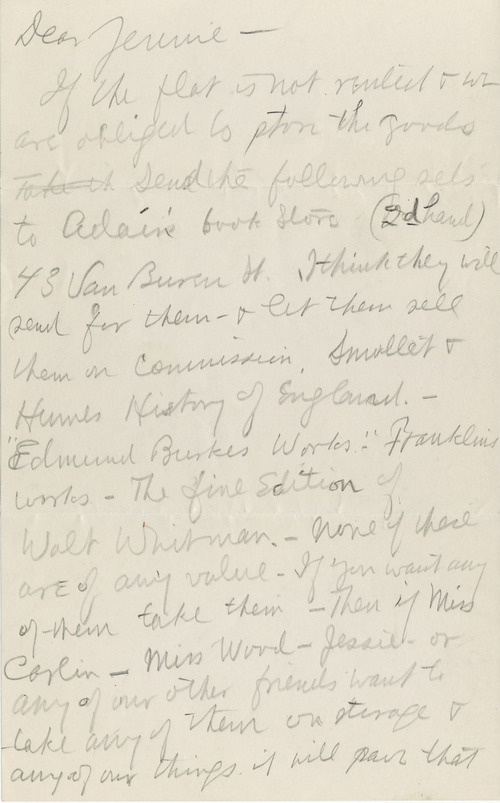 Dear Jennie —
If the flat is not rented & we
are obliged to store the goods
Take th Send the following sets
to Adair's book store (2d hand)
43 Van Buren St. I think they will
send for them - & let them sell
them on commission, Smollet &
Humes History of England. -
"Edmund Burkes Works." Franklins
works - The fine Edition of
Walt Whitman. - None of these
are of any value - If you want any
of them take them - Then if Miss
Carlin - Miss Wood - Jessie - or
any of our other friends want to
take any of them on storage &
any of our things it will save that